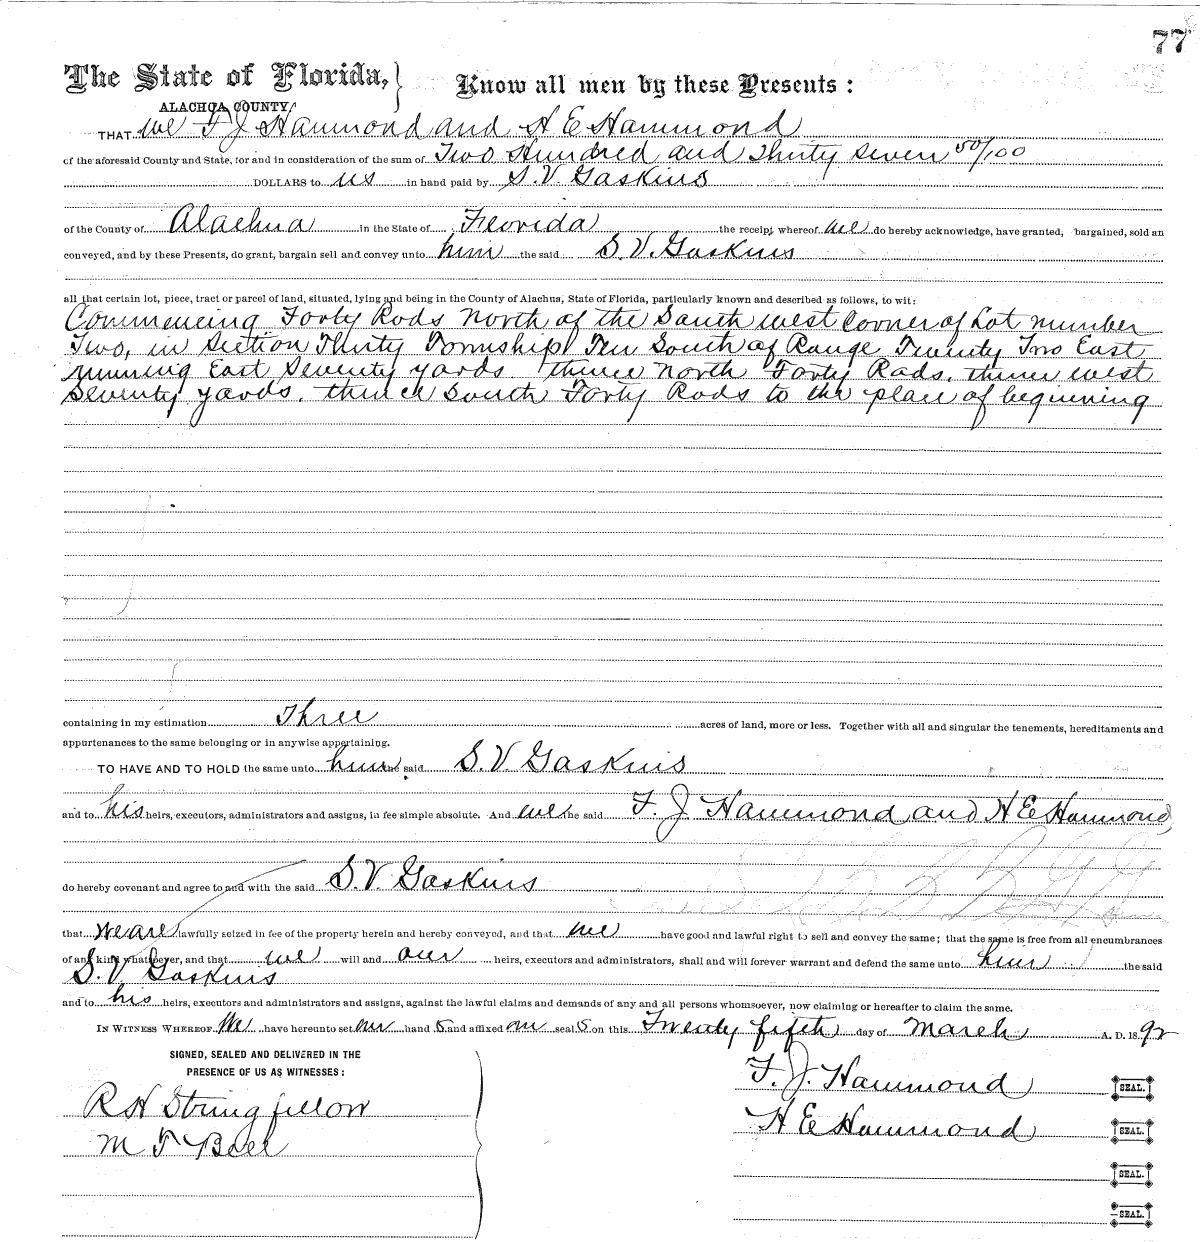 77
The State of Florida, } Know all men by these Presents :
ALACHUA COUNTY
THAT we F J Hammond and H E Hammond
of the aforesaid County and State, for and in consideration of the sum of Two Hundred and Thirty Seven 50/100
DOLLARS to us in hand paid by S. V. Gaskins
of the County of Alachua in the State of Florida the receipt whereof we do hereby acknowledge, have granted, bargained, sold an
conveyed, and by these Presents, do grant, bargain sell and convey unto him the said S. V. Gaskins
all that certain lot, piece, tract or parcel of land, situated, lying and being in the County of Alachua, State of Florida, particularly known and described as follows, to wit:
Commencing Forty Rods North of the South west Corner of Lot number
Two, in Section Thirty Township Ten South of Range Twenty Two East
running East Seventy yards. thence North Forty Rods. thence west
Seventy yards. thence South Forty Rods to the place of beginning
containing in my estimation Three acres of land, more or less. Together with all and singular the tenements, hereditaments and
appurtenances to the same belonging or in anywise appertaining.
TO HAVE AND TO HOLD the same unto him the said S. V. Gaskins
and to his heirs, executors, administrators and assigns, in fee simple absolute. And we the said F. J. Hammond and H E Hammond
do hereby covenant and agree to and with the said S. V. Gaskins
that we are lawfully seized in fee of the property herein and hereby conveyed, and that we have good and lawful right to sell and convey the same; that the same is free from all encumbrances
of any kind whatsoever, and that we will and our heirs, executors and administrators, shall and will forever warrant and defend the same unto him the said
S. V. Gaskins
and to his heirs, executors and administrators and assigns, against the lawful claims and demands of any and all persons whomsoever, now claiming or hereafter to claim the same.
IN WITNESS WHEREOF We have hereunto set our hand s and affixed our seal s on this Twenty fifth day of March A. D. 1892
SIGNED, SEALED AND DELIVERED IN THE
PRESENCE OF US AS WITNESSES :
F. J. Hammond SEAL.
R H Stringfellow
H E Hammond SEAL.
M F Bell
SEAL.
SEAL.